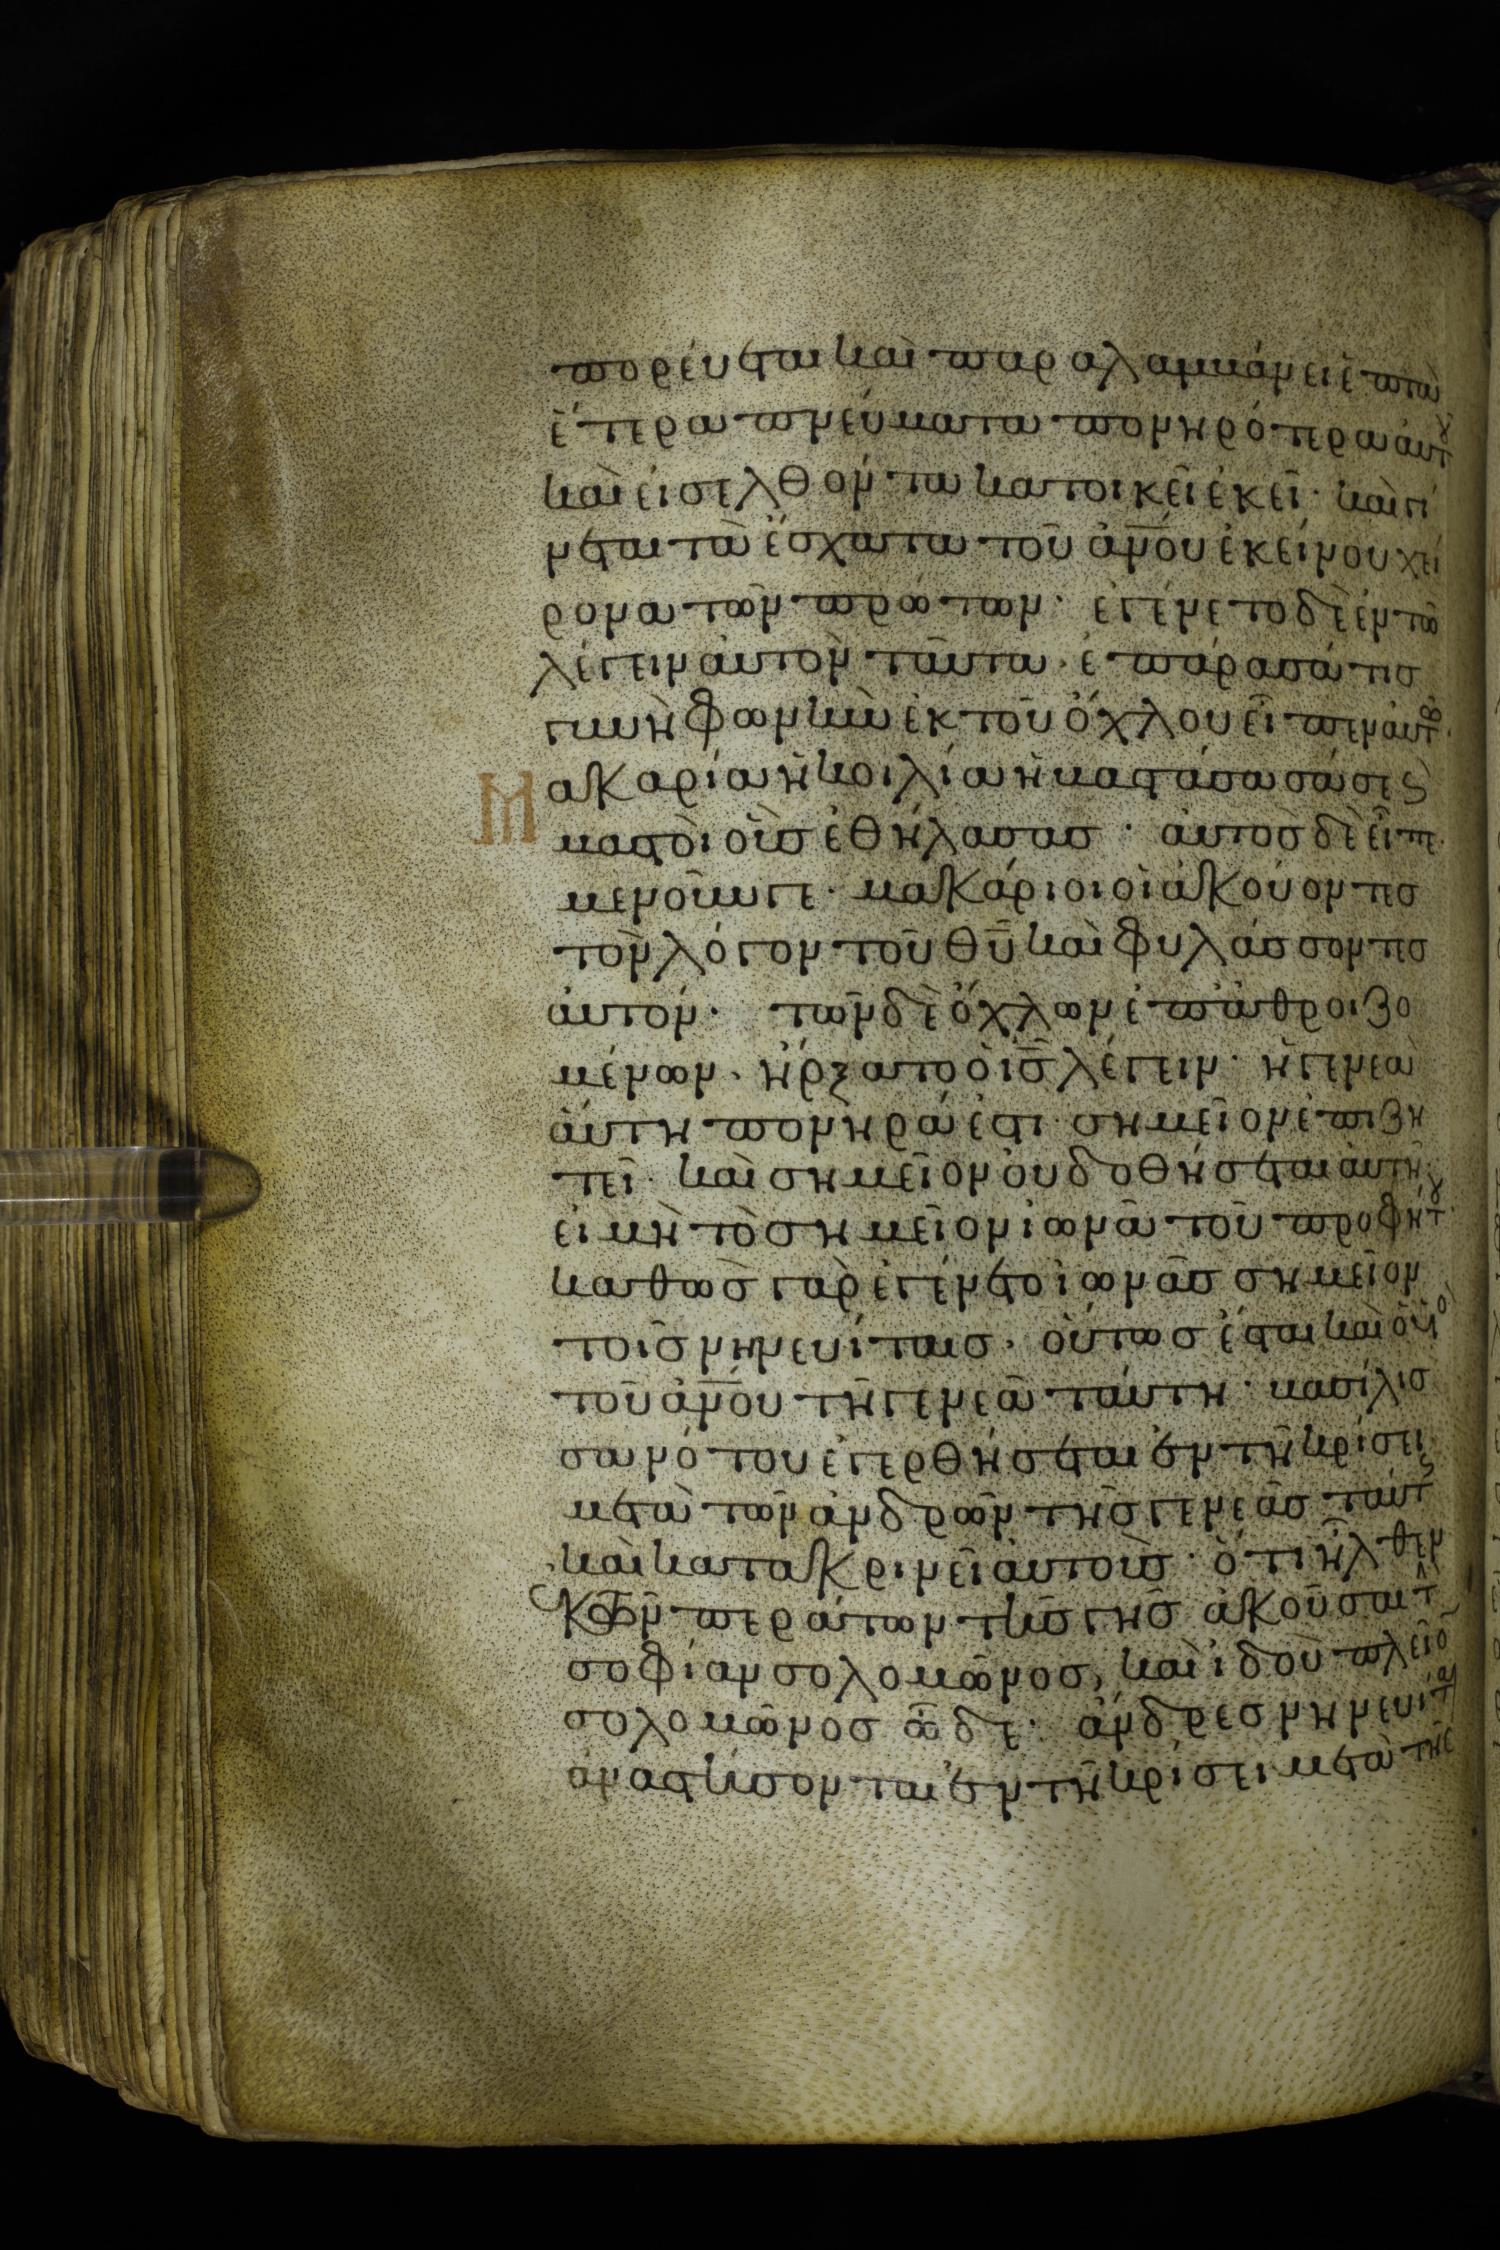 πορέυεται καὶ παραλαμβάνει ἑπτὰ
ἕτερα πνεύματα πονηρότερα ἑαυτοῦ
καὶ εἰσελθόντα κατοικεῖ ἐκεῖ· καὶ γί
νεται τὰ ἔσχατα τοῦ ἀν̅ο̅υ ἐκείνου χεί
ρονα τῶν πρώτων· ἐγένετο δὲ ἐν τῶ
λέγειν ἀυτὸν ταῦτα· ἐπάρασά τις
γυνὴ φωνὴν ἐκ τοῦ ὄχλου εἶπεν ἀυτῶ·
Μακαρία ἡ κοιλία ἡ βαστάσασά σε ς
μαστοὶ οὓς ἐθήλασας· ἀυτὸς δὲ εἶπε·
μενοῦνγε· μακάριοι οἱ ἀκούοντες
τὸν λόγον τοῦ θ̅υ̅ καὶ φυλάσσοντες
ἀυτόν· τῶν δὲ ὄχλων ἐπαθροιζο
μένων· ἤρξατο ὁ ι̅ς̅ λέγειν· ἡ γενεὰ
ἅυτη πονηρά ἐστι· σημεῖον ἐπιζη
τεῖ· καὶ σημεῖον ὀυ δοθήσεται ἀυτῆ·
εἰ μὴ τὸ σημεῖον ἰωνᾶ τοῦ προφήτου·
καθὼς γὰρ ἐγένετο ἰωνᾶς σημεῖον
τοῖς νηνευίταις· ὅυτως ἔσται καὶ ὁ υ̅ς̅
τοῦ ἀν̅ο̅υ τῆ γενεᾶ ταύτη· βασίλισ
σα νότου ἐγερθήσεται ἐν τῆ κρίσει
μετὰ τῶν ἀνδρῶν τῆς γενεᾶς ταύτης
καὶ κατακρινεῖ ἀυτοὺς· ὅτι ἦλθεν
ἐκ τῶν περάτων τῆς γῆς ἀκοῦσαι τὴν
σοφίαν σολομῶνος, καὶ ἰδοὺ πλεῖον
σολομῶνος ὧδε· ἄνδρες νηνευίται
ἀναστήσονται ἐν τῆ κρίσει μετὰ τῆς